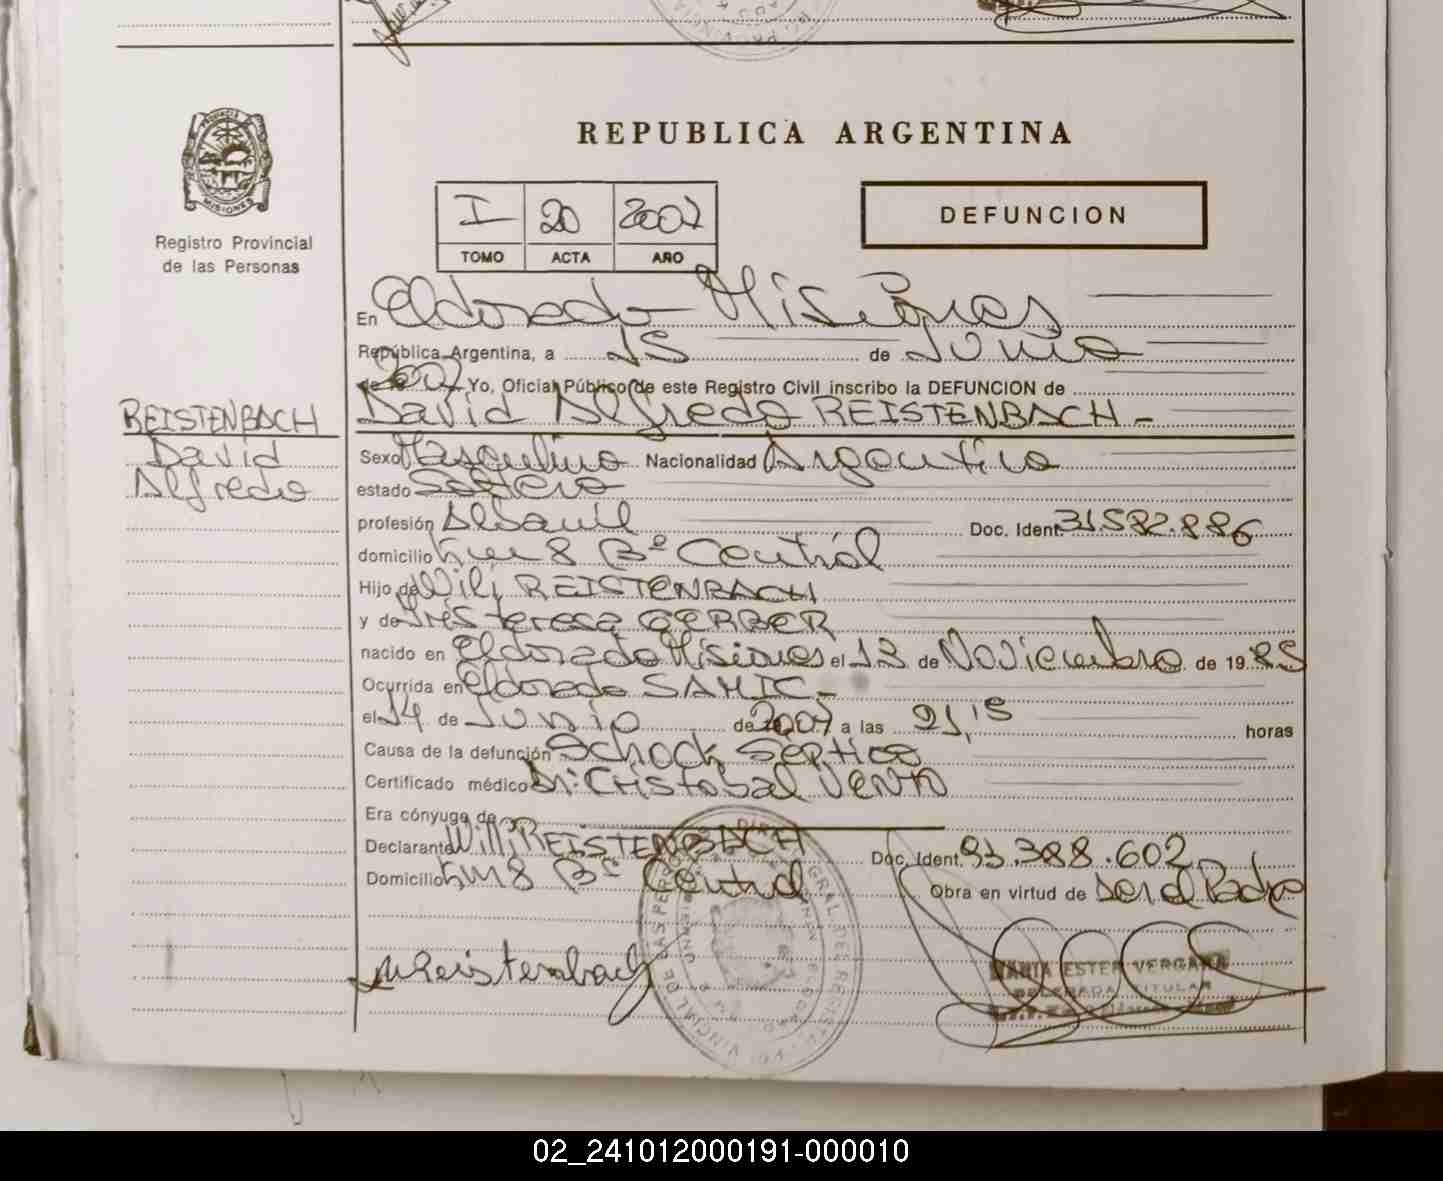 REPUBLICA ARGENTINA
PROVINCIA
MISIONES
Registro Provincial
de las Personas
I 20 2007
TOMO ACTA AÑO
DEFUNCION
En Eldorado Misiones
República Argentina, a 15 de Junio
de 2007 Yo, Oficial Público de este Registro Civil inscribo la DEFUNCION de
David Alfredo REISTENBACH -
REISTENBACH
David
Alfredo
Sexo Masculino Nacionalidad Argentina
estado Soltero
profesión Albañil Doc. Ident. 31.582.886
domicilio Km 8 Bº Central
Hijo de Willi REISTENBACH
y de Inés teresa GERBER
nacido en Eldorado Misiones el 13 de Noviembre de 1985
Ocurrida en Eldorado SAMIC -
el 14 de Junio de 2007 a las 21,15 horas
Causa de la defunción Schock Septico
Certificado médico Dr: Cristobal VENTO
Era cónyuge de
Declarante Willi REISTENBACH Doc. Ident. 93.388.602
Domicilio Km 8 Bº Central Obra en virtud de ser el Padre
WReistenbach
MARIA ESTER VERGARA
DELEGADA TITULAR
02_241012000191-000010